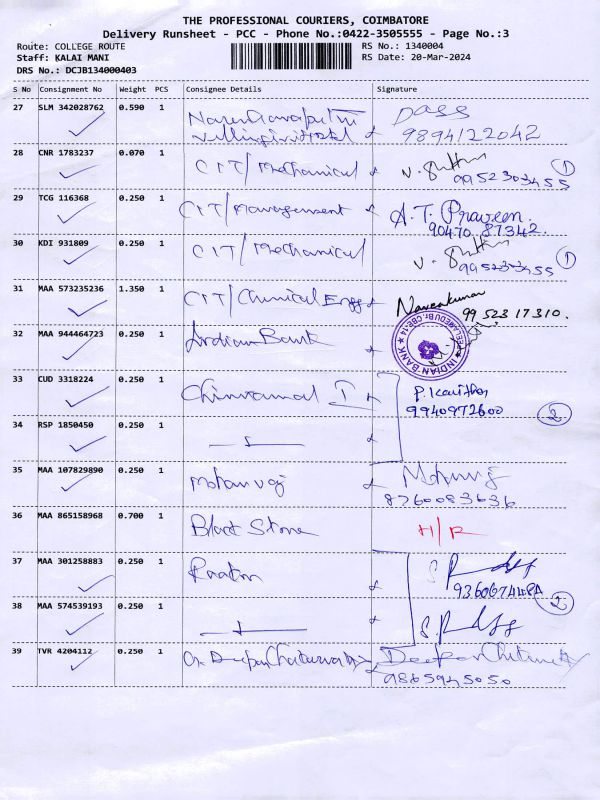 THE PROFESSIONAL COURIERS, COIMBATORE
Delivery Runsheet - PCC - Phone No.:0422-3505555 - Page No.:3
Route: COLLEGE ROUTE RS No.: 1340004
Staff: KALAI MANI RS Date: 20-Mar-2024
DRS No.: DCJB134000403
S No Consignment No Weight PCS Consignee Details Signature
27 SLM 342028762 0.590 1 Dass
9894122042
28 CNR 1783237 0.070 1 CIT/Mechanical 1
9952303455
29 TCG 116368 0.250 1 CIT/Management A.T. Praveen.
90470 87342.
30 KDI 931809 0.250 1 CIT/Mechanical 1
9952303455
31 MAA 573235236 1.350 1 CIT/Chemical Engg Naveenkumar
99 523 17310.
32 MAA 944464723 0.250 1 Indian Bank INDIAN BANK
33 CUD 3318224 0.250 1 P. Kavitha
9940972600 2
34 RSP 1850450 0.250 1
35 MAA 107829890 0.250 1 Mohanraj
8760083636
36 MAA 865158968 0.700 1 Black Stone H/R
37 MAA 301258883 0.250 1
38 MAA 574539193 0.250 1 2
39 TVR 4204112 0.250 1
9865945050